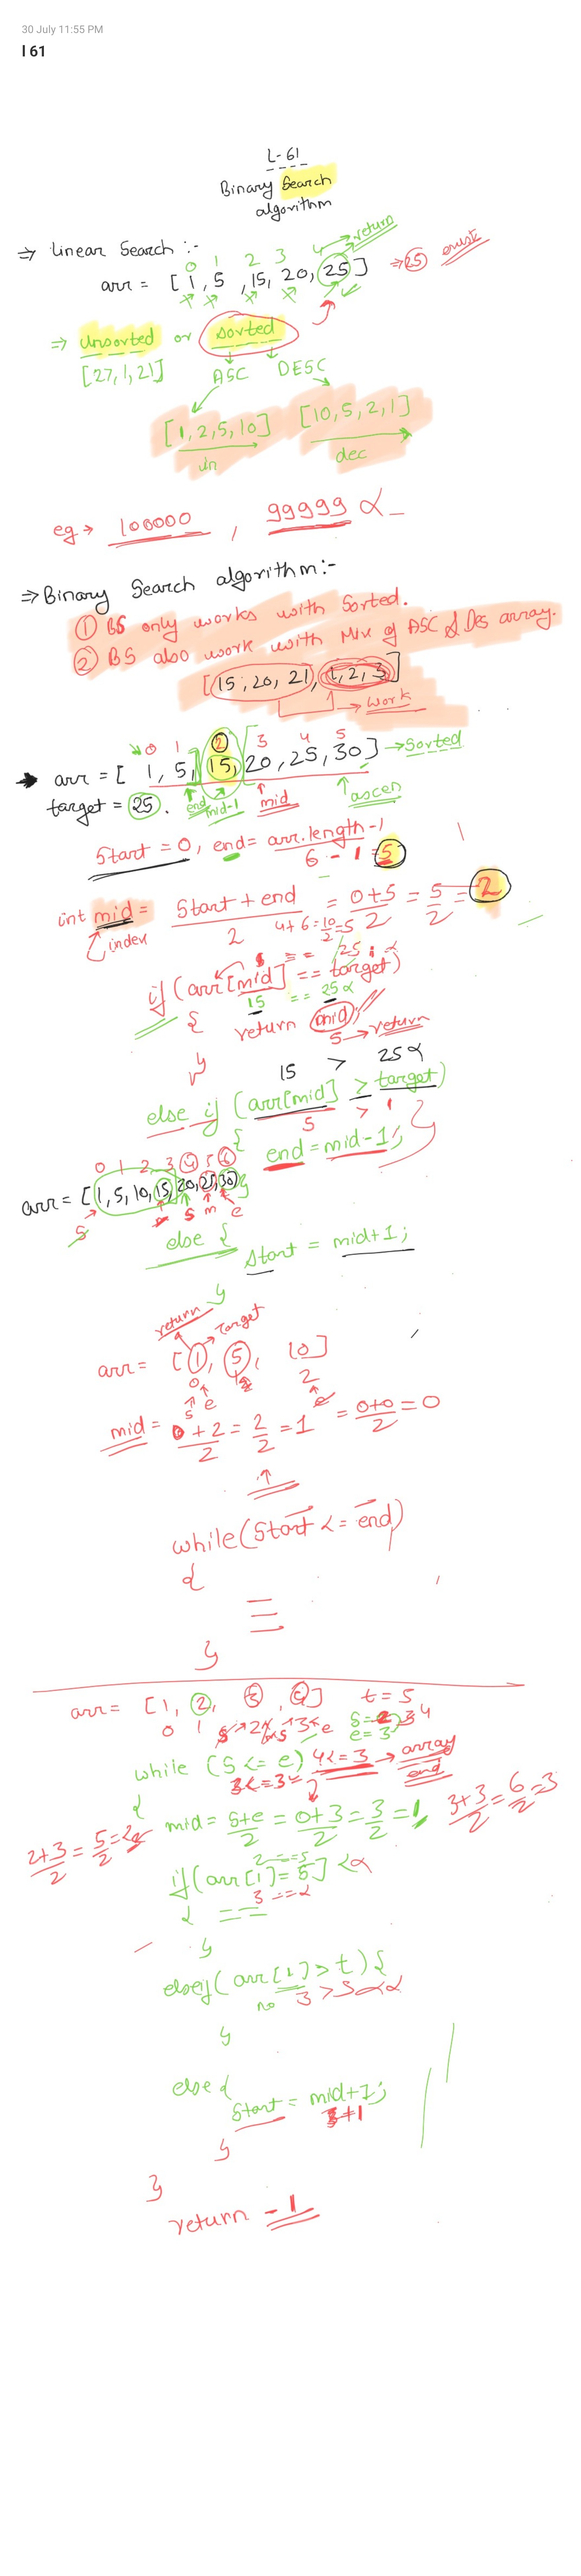 30 July 11:55 PM
l 61
L-61
Binary Search
algorithm
⇒ Linear Search :-
return
0 1 2 3 4
arr = [1, 5, 15, 20, 25] ⇒ 25 exist
⇒ Unsorted or sorted
[27, 1, 21] ASC DESC
[1, 2, 5, 10] [10, 5, 2, 1]
in dec
eg → 100000, 99999
⇒ Binary Search algorithm:-
① BS only works with Sorted.
② BS also work with Mix of ASC & Des array.
[15, 20, 21, 1, 2, 3]
→ work
0 1 2 3 4 5
→ arr = [1, 5, 15, 20, 25, 30] → Sorted
target = 25. end mid-1 mid ascen
Start = 0, end = arr.length-1
6 - 1 = 5
int mid = Start + end / 2 = 0+5 / 2 = 5/2 = 2
index 4+6=10/2=5
if (arr[mid] == target)
15 == 25
{ return mid;
5 → return
}
15 > 25
else if (arr[mid] > target)
5 > 1
{ end = mid-1; }
0 1 2 3 4 5 6
arr = [1, 5, 10, 15, 20, 25, 30]
s s m e
else { start = mid+1;
}
return Target
arr = [1, 5, 10]
0 2
s e
mid = 0+2/2 = 2/2 = 1 = 0+0/2 = 0
while (Start <= end)
{
}
arr = [1, 2, 3, 4] t = 5
0 1 2 3 e s = 2 3 4
e = 3
while (S <= e) 4<=3 → array end
3<=3
{
mid = s+e/2 = 0+3/2 = 3/2 = 1, 3+3/2 = 6/2 = 3
2+3/2 = 5/2 = 2
2 == 5
if (arr[1] = 5]
3 ==
{ ==
}
elseif (arr[1] > t) {
no 3 > 5
}
else {
Start = mid+1;
3+1
}
}
return -1